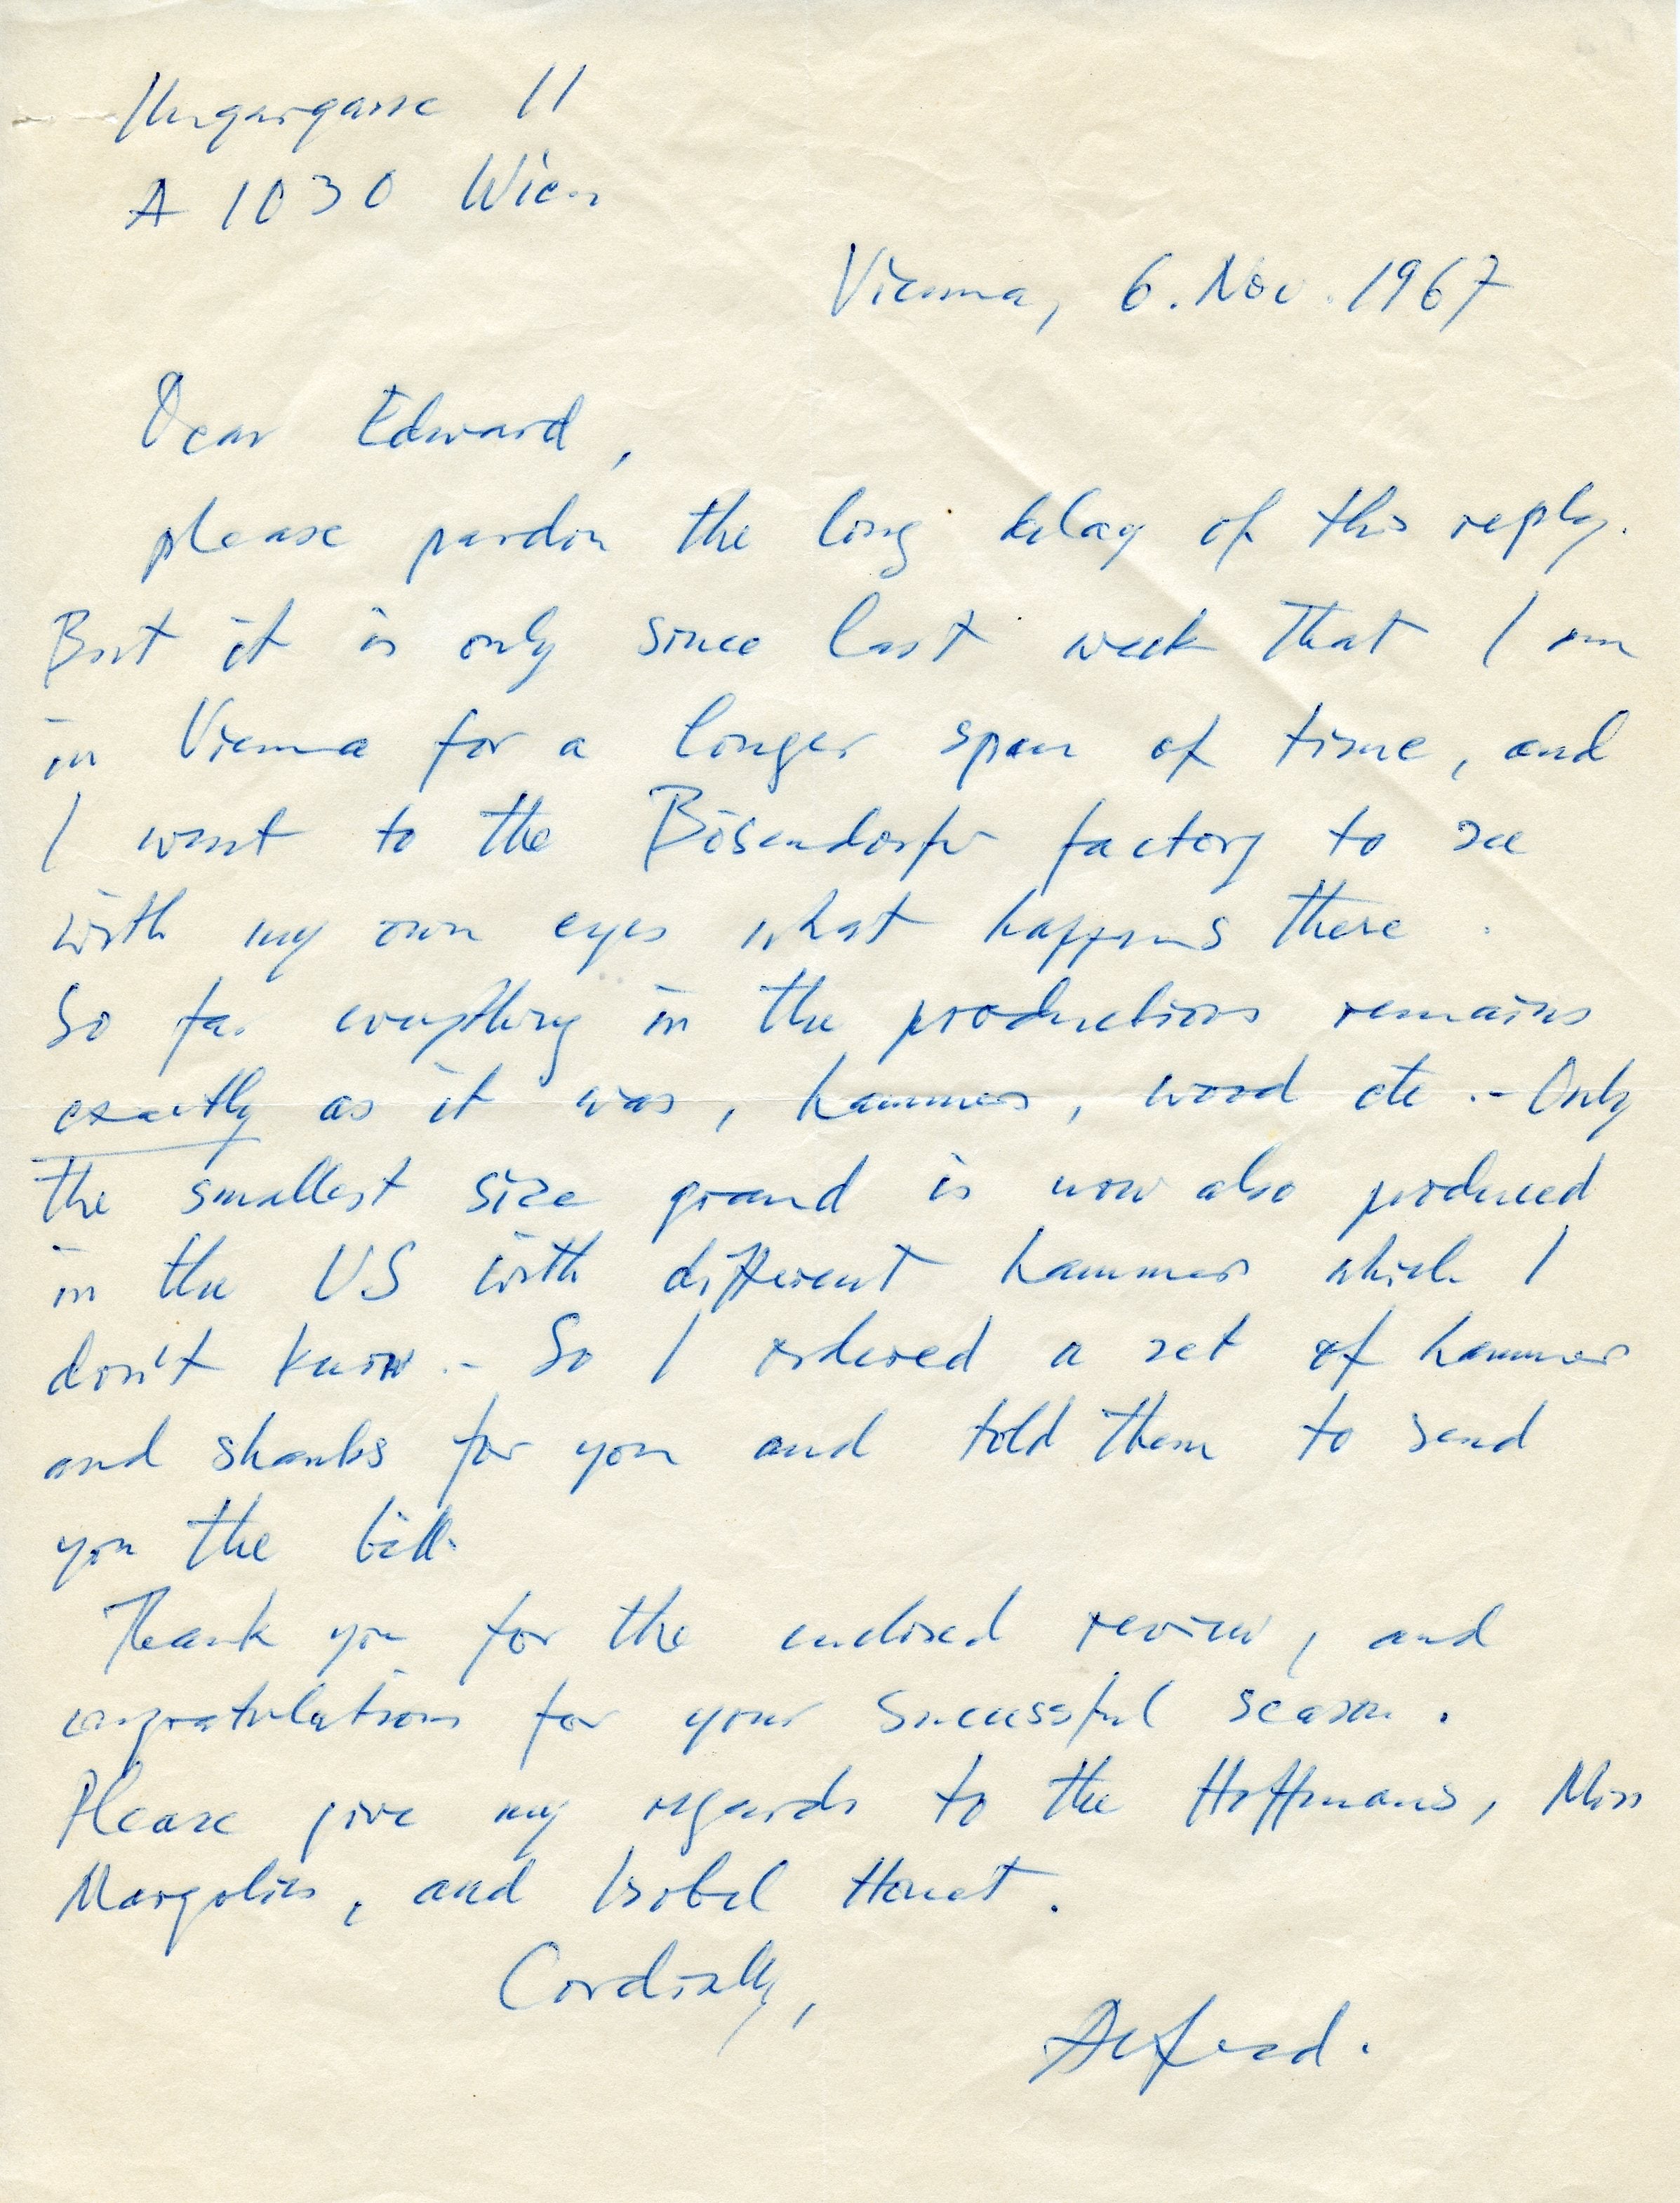 Ungargasse 11
A 1030 Wien
Vienna, 6. Nov. 1967
Dear Edward,
please pardon the long delay of this reply.
But it is only since last week that I am
in Vienna for a longer span of time, and
I went to the Bösendorfer factory to see
with my own eyes what happens there.
So far everything in the productions remains
exactly as it was, hammers, wood etc. - Only
the smallest size grand is now also produced
in the US with different hammers which I
don't know. - So I ordered a set of hammers
and shanks for you and told them to send
you the bill.
Thank you for the enclosed review, and
congratulations for your successful season.
Please give my regards to the Hoffmans, Miss
Margolies, and Isobel
Cordially,
Alfred.